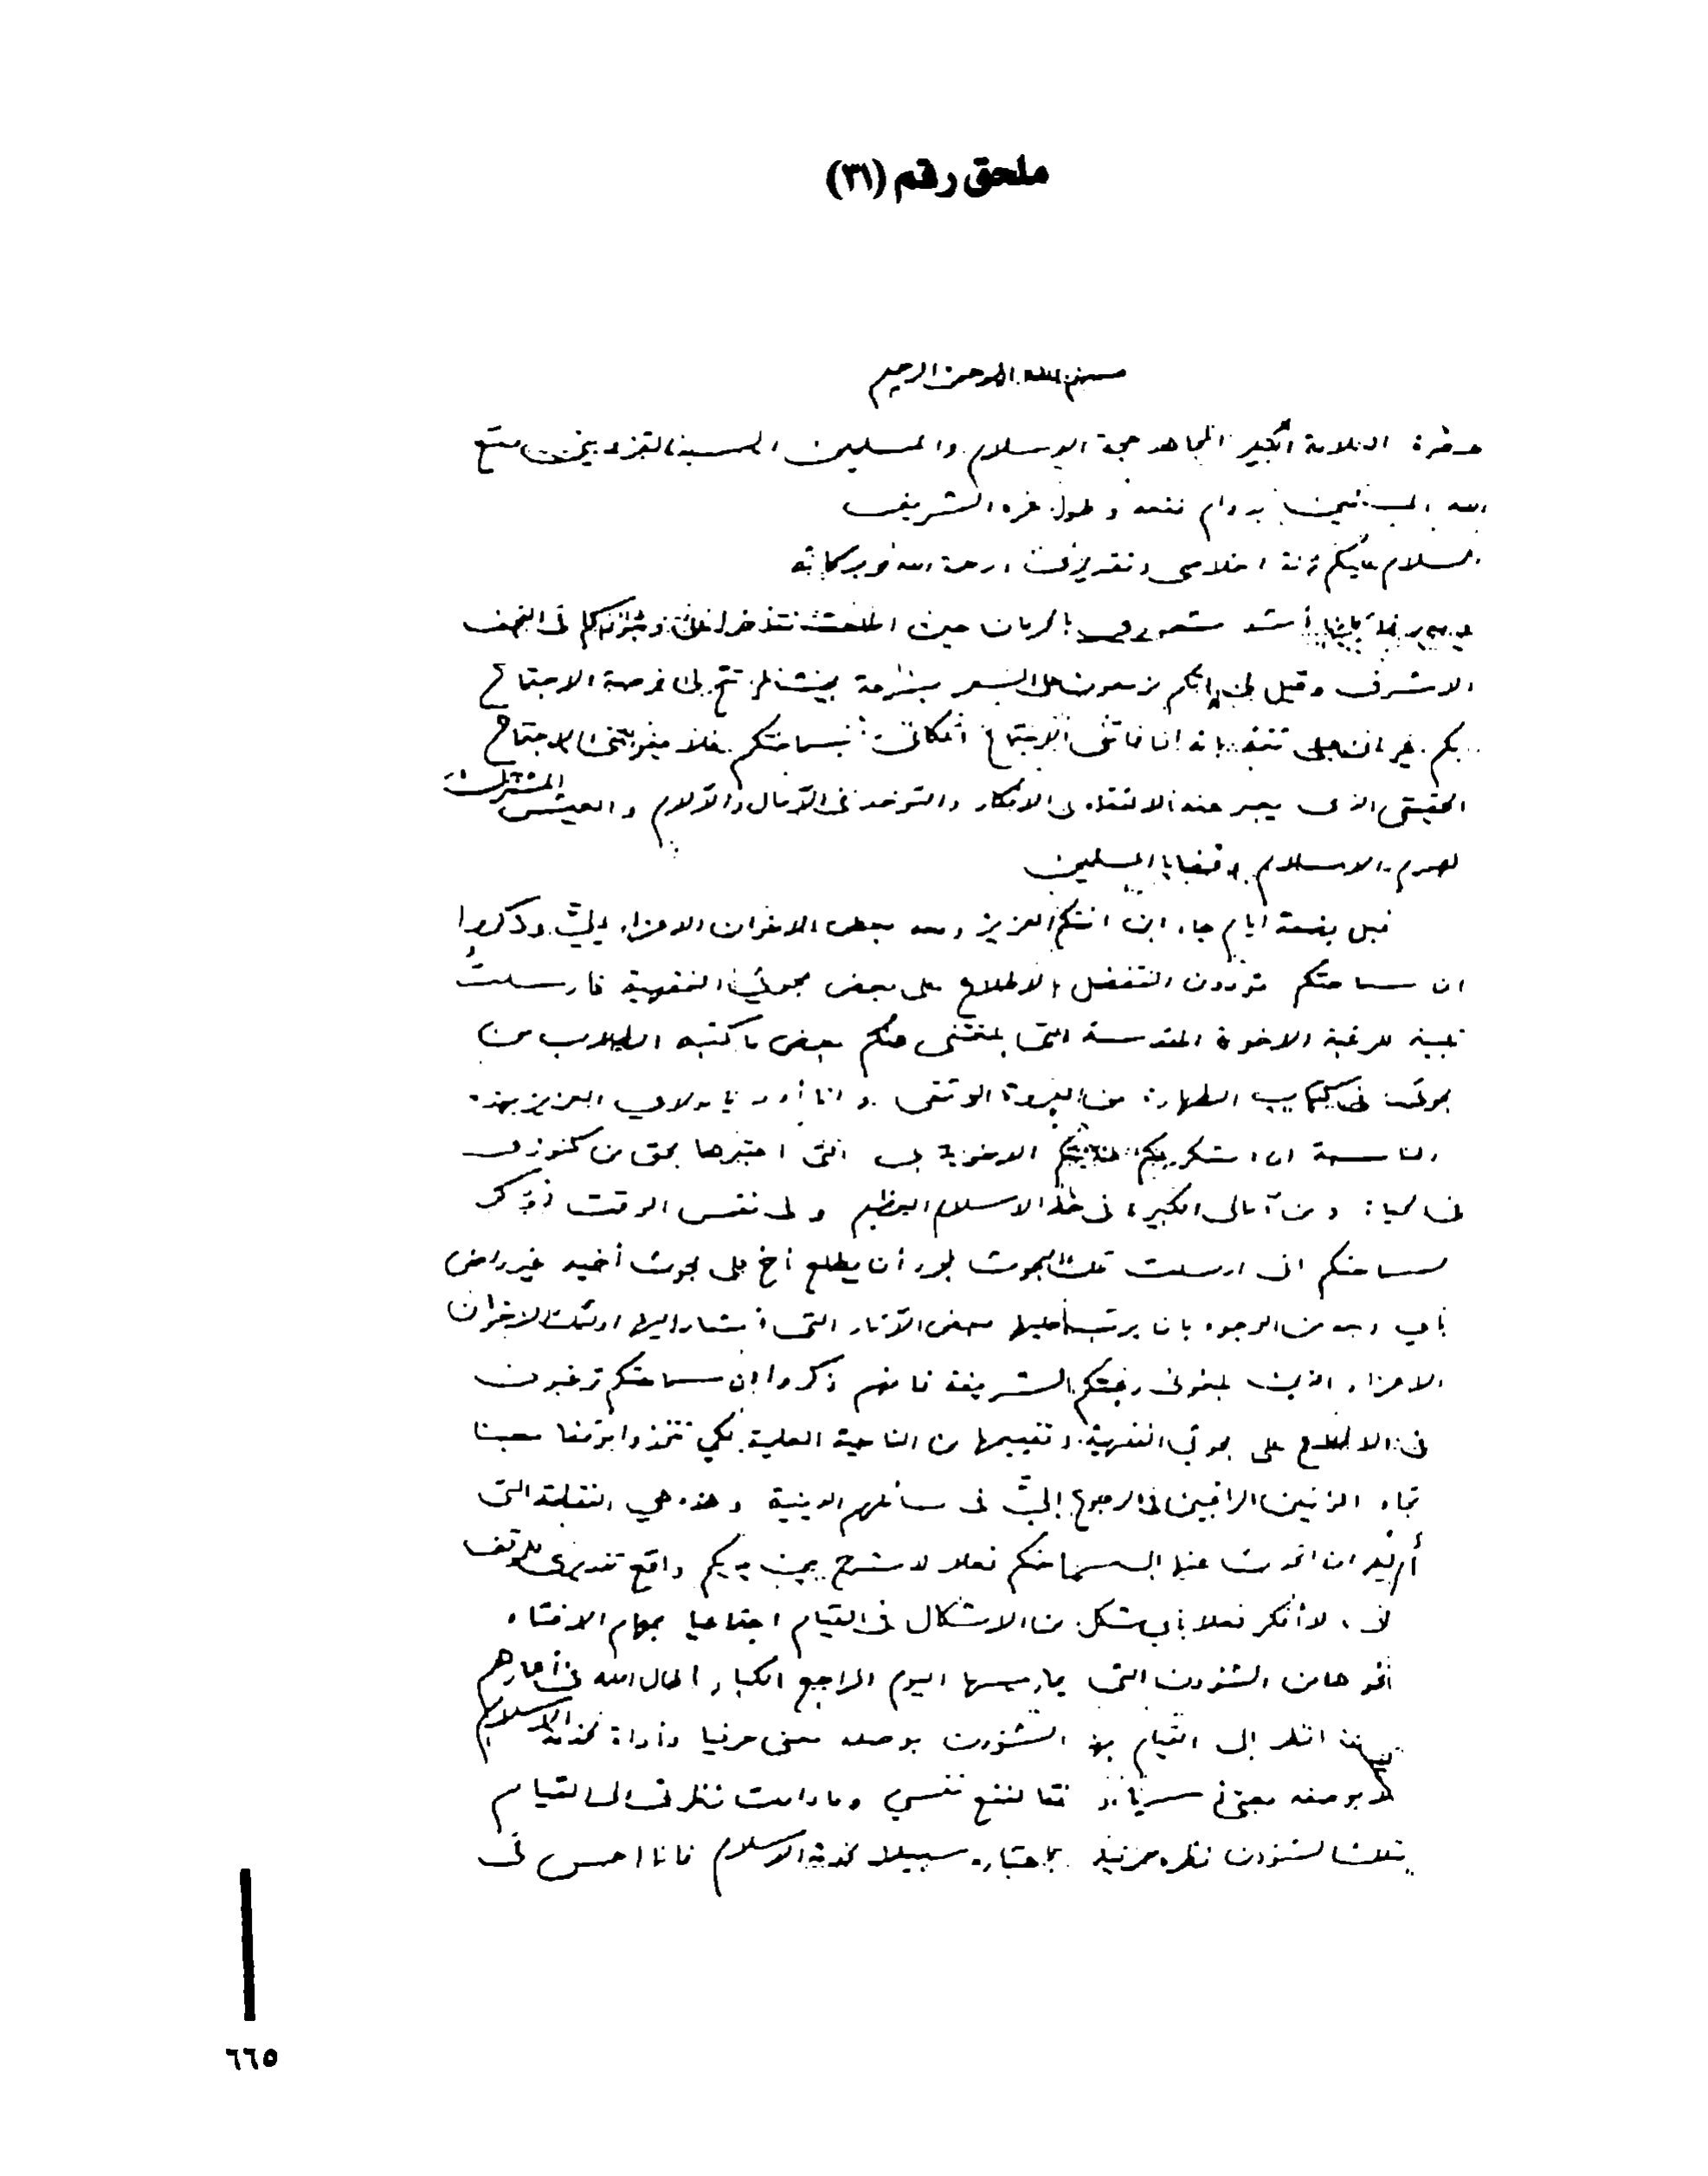 ملحق رقم (٣١)
بسم الله الرحمن الرحيم
حضرة العلامة الكبير المجاهد حجة الاسلام والمسلمين السيد القزويني متع
الله المسلمين بدوام نفعه وطول عمره الشريف
السلام عليكم زنة اخلاصي وتقديري ورحمة الله وبركاته
أشد شعوري بالحرمان حين في النجف
الاشرف وقيل لي انكم تزمعون على السفر بسرعة بحيث لم تتح لي فرصة الاجتماع
بكم غير ان فاتني الاجتماع المكاني بسماحتكم فلا يفوتني الاجتماع
الحقيقي الذي يعبر عنه الالتقاء في الافكار والتوحد في الآمال والآلام والعيش المشترك
لهموم الاسلام وقضايا المسلمين
قبل بضعة أيام جاء ابن العزيز ومعه بعض الاخوان الاعزاء إليَّ وذكروا
ان سماحتكم تودون التفضل بالاطلاع على بعض بحوثي الفقهية فأرسلتُ
تلبية للرغبة الاخوية المقدسة التي بلغتني عنكم بعض ما كتبه الطلاب من
بحوثي في كتاب الطهارة من العروة الوثقى وانا أود يا مولاي العزيز بهذه
المناسبة ان اشكر لكم الاخوية بي التي اعتبرها بحق من كنوزي
في الحياة ومن آمالي الكبيرة في خط الاسلام العظيم وفي نفس الوقت أؤكد
لسماحتكم اني ارسلت تلك البحوث لمجرد أن يطلع أخ على بحوث أخيه غير راض
بأي وجه من الوجوه بان يرتب عليها بعض الآثار التي أشار اليها اولئك الاخوان
الاعزاء الذين بلغوني رغبتكم الشريفة فانهم ذكروا ان سماحتكم ترغبون
في الاطلاع على بحوثي الفقهية وتقييمها من الناحية العلمية لكي تتخذوا موقفا معينا
تجاه الراغبين في الرجوع إليَّ في مسائلهم الدينية وهذه هي النقطة التي
أريد ان اتحدث عنها الى سماحتكم فعلا لاشرح بين يديكم واقع تقديري للموقف
اني لا أفكر فعلا بأي شكل من الاشكال في القيام اجتماعيا بمهام الافتاء
ونحوها من الشؤون التي يمارسها اليوم المراجع الكبار اطال الله في أعمارهم
انظر إلى القيام بهذه الشؤون بوصفه معنى حرفيا وأداة لخدمة الاسلام
لا بوصفه معنى نفسي وما دامت نظرتي الى القيام
بتلك الشؤون نظرة حرفية باعتباره سبيلا لخدمة الاسلام فانا احس في
٦٦٥